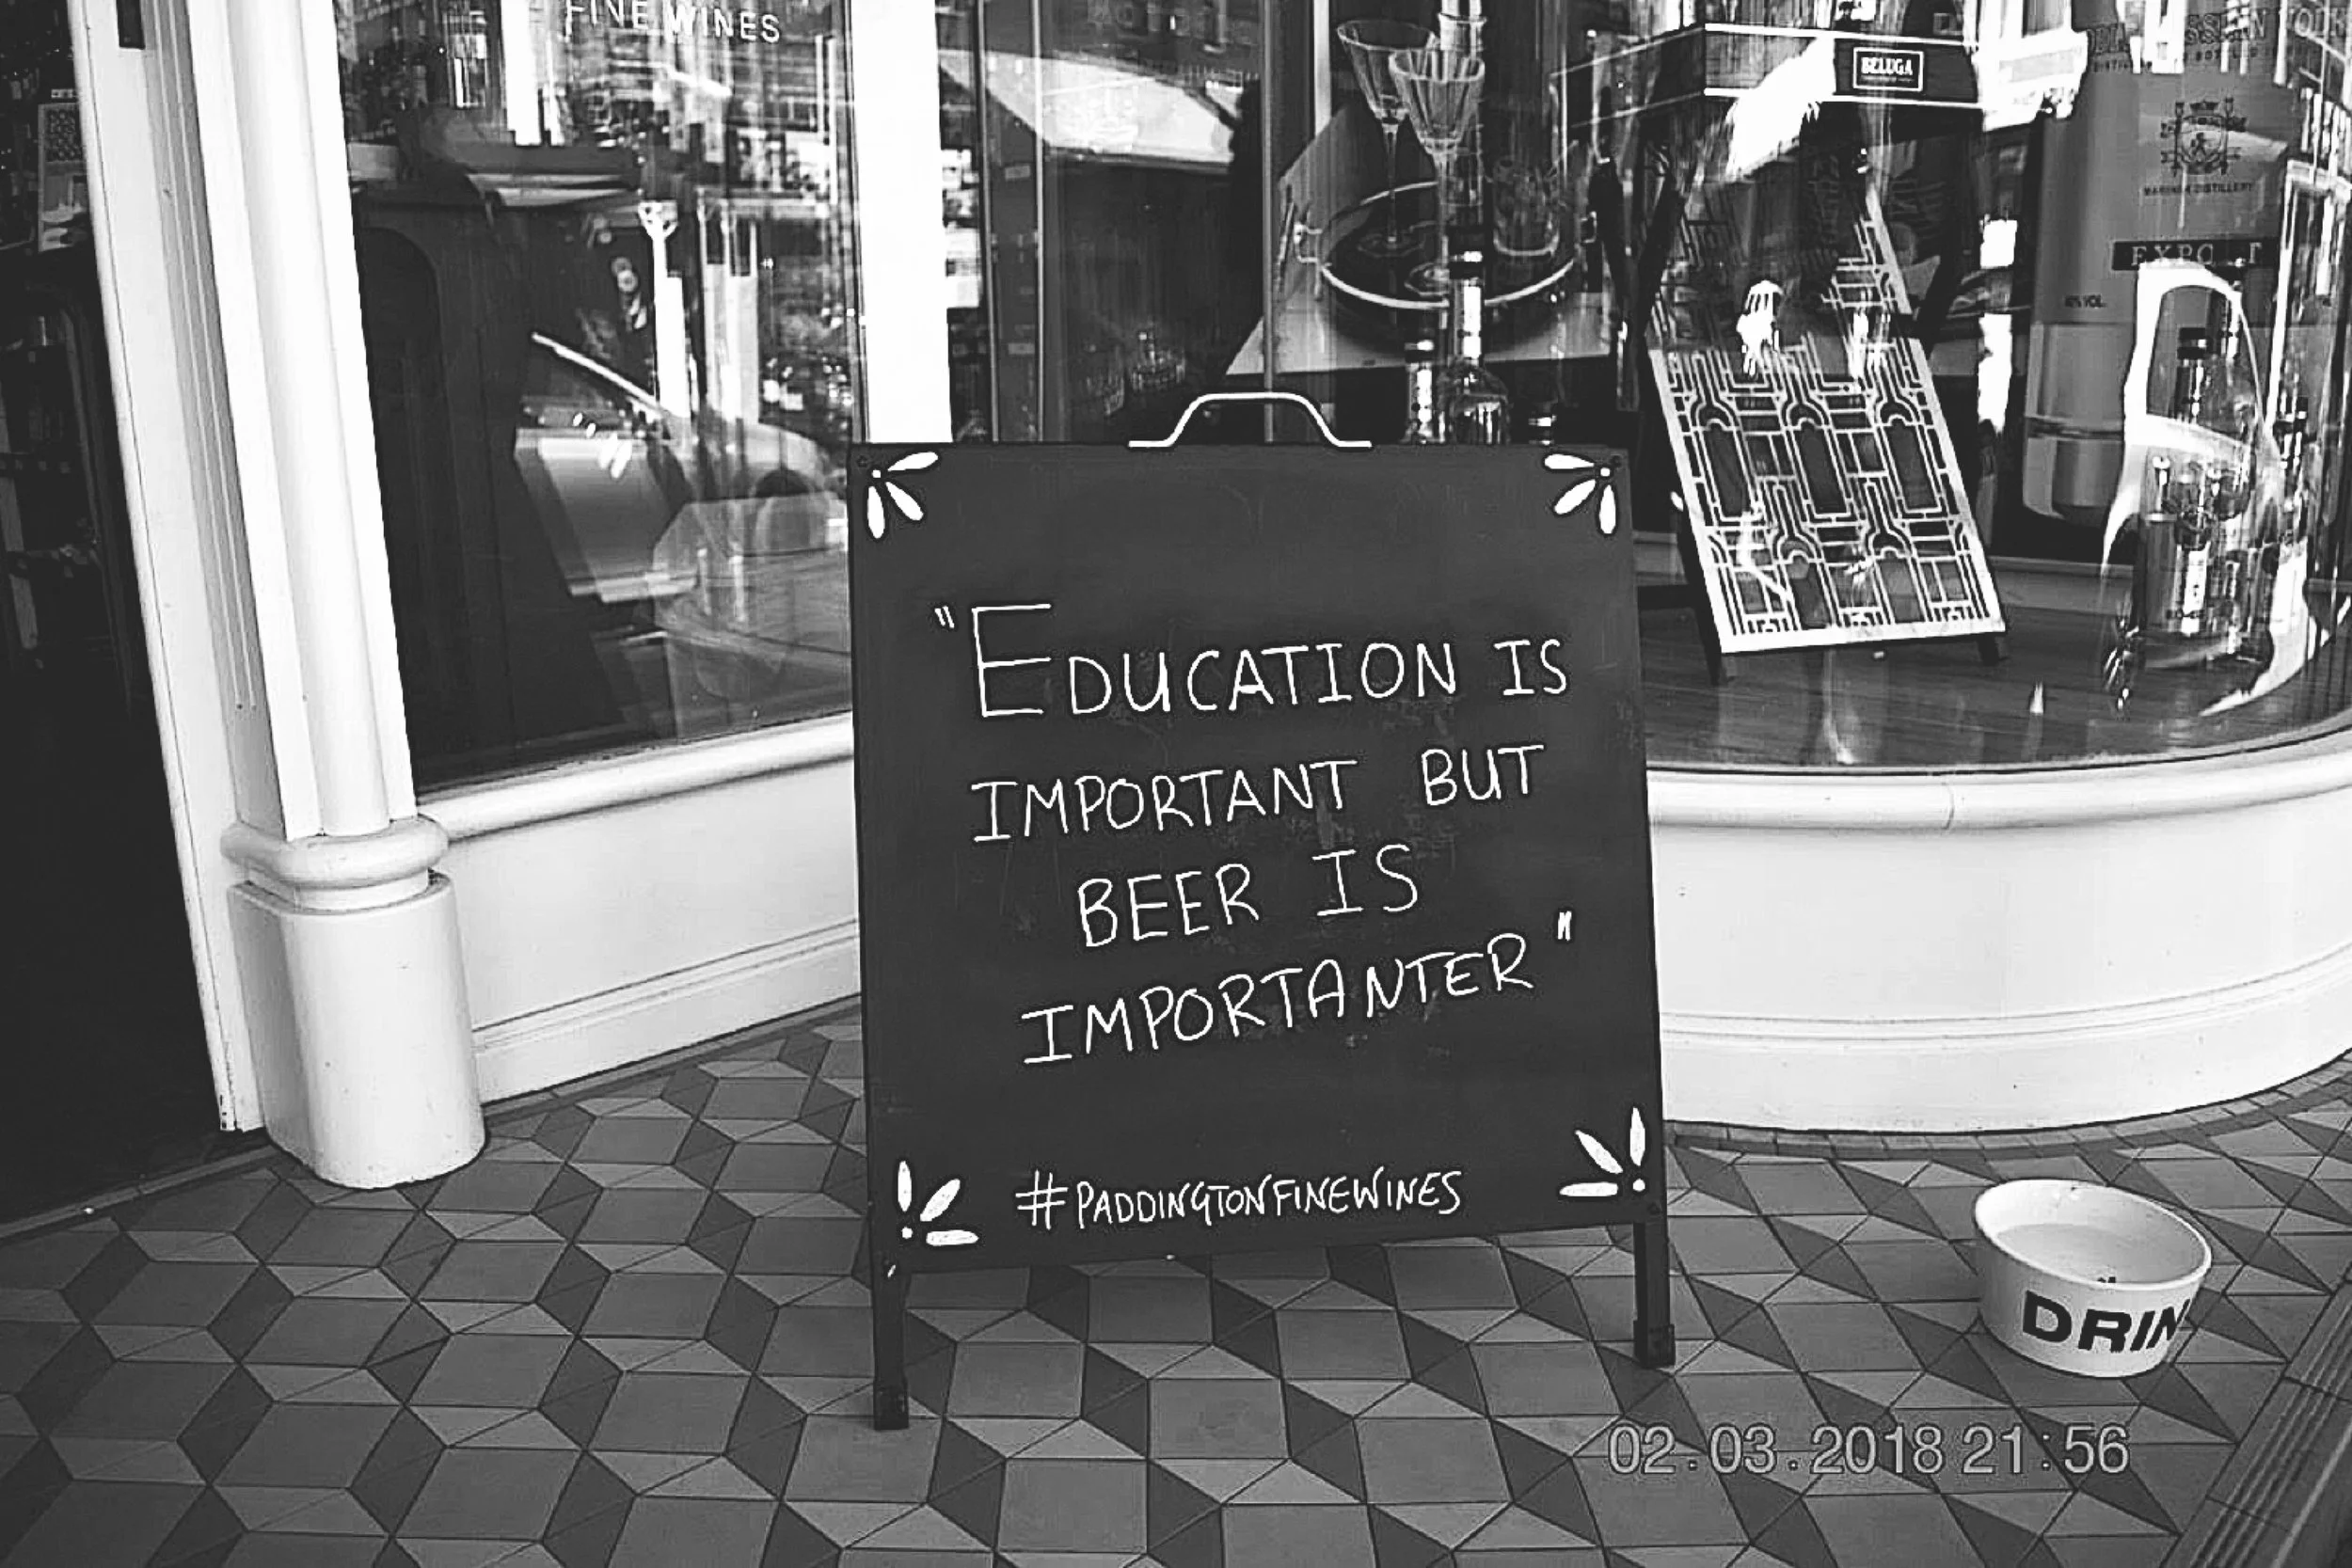 FINE WINES
BELUGA
EXPO
"EDUCATION IS
IMPORTANT BUT
BEER IS
IMPORTANTER"
#PADDINGTONFINEWINES
DRIN
02.03.2018 21:56